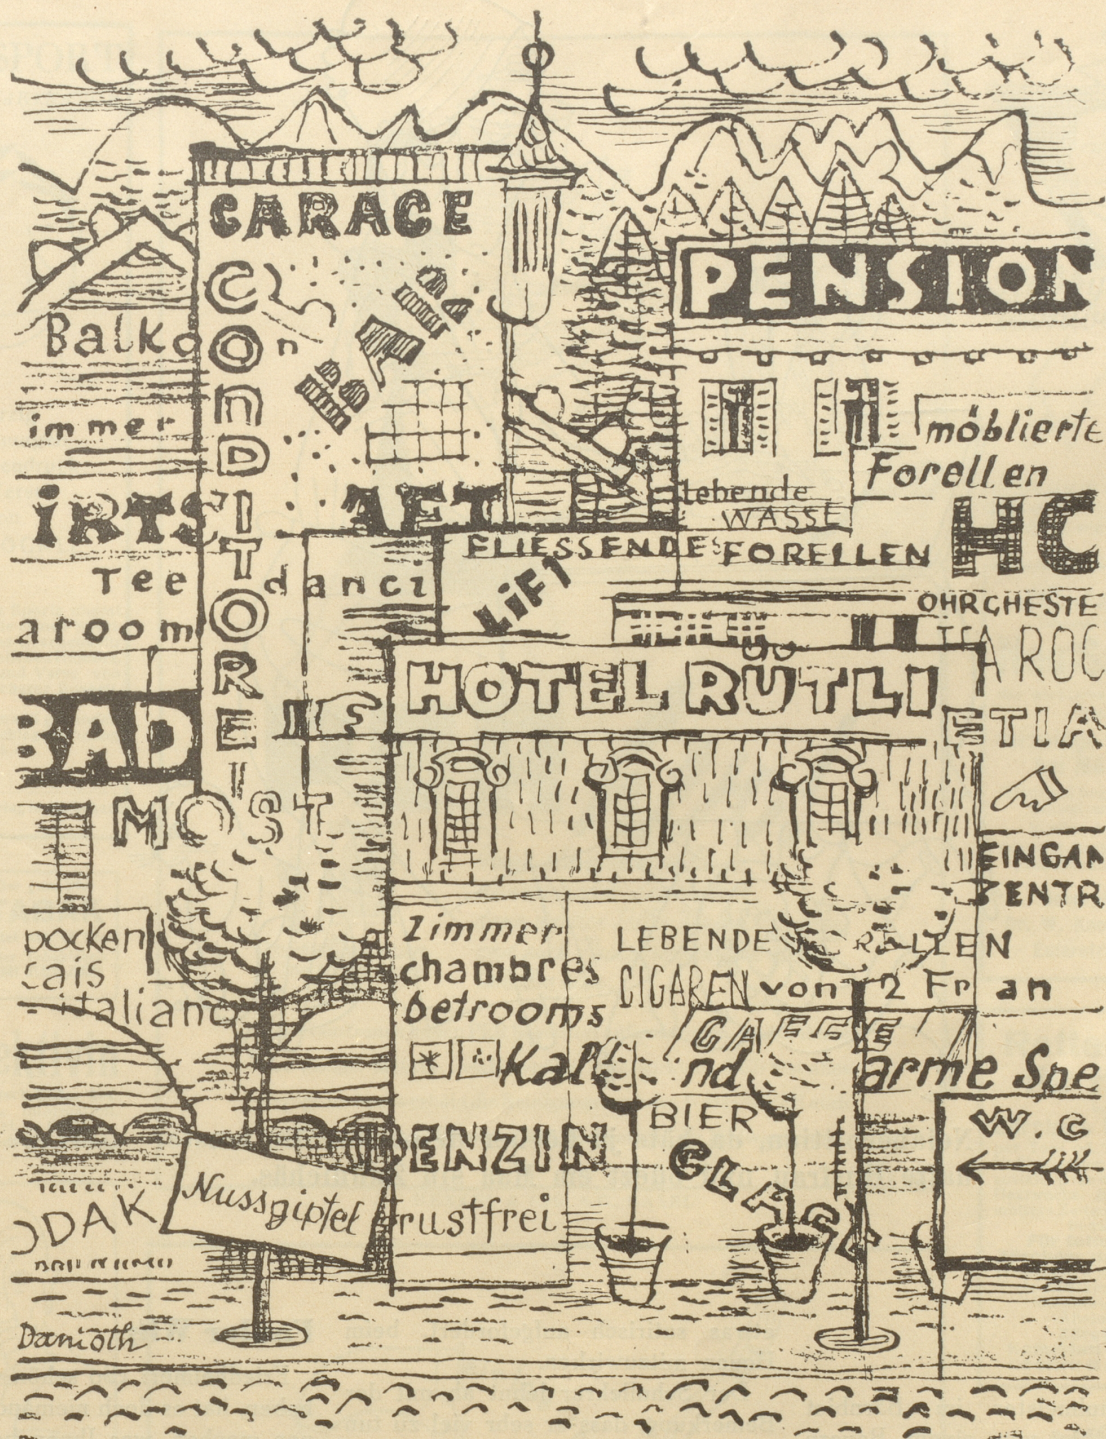 GARAGE
CONDITOREI
BAR
PENSION
Balkon
immer
möblierte
Forellen
IRTS AFT
lebende
WASSE
HC
FLIESSENDES FORELLEN
LiFT
Tee danci
aroom
OHRGHESTE
HOTEL RÜTLI
BAD
ETIA
MOST
EINGAN
ZENTR
pocken
cais
italiano
Zimmer
chambres
betrooms
LEBENDE FORELLEN
CIGAREN von 2 Fr an
CAFFE
Kal nd arme Spe
BIER
W.C
BENZIN
GLACE
Nussgipfel
ODAK
frustfrei
Danioth